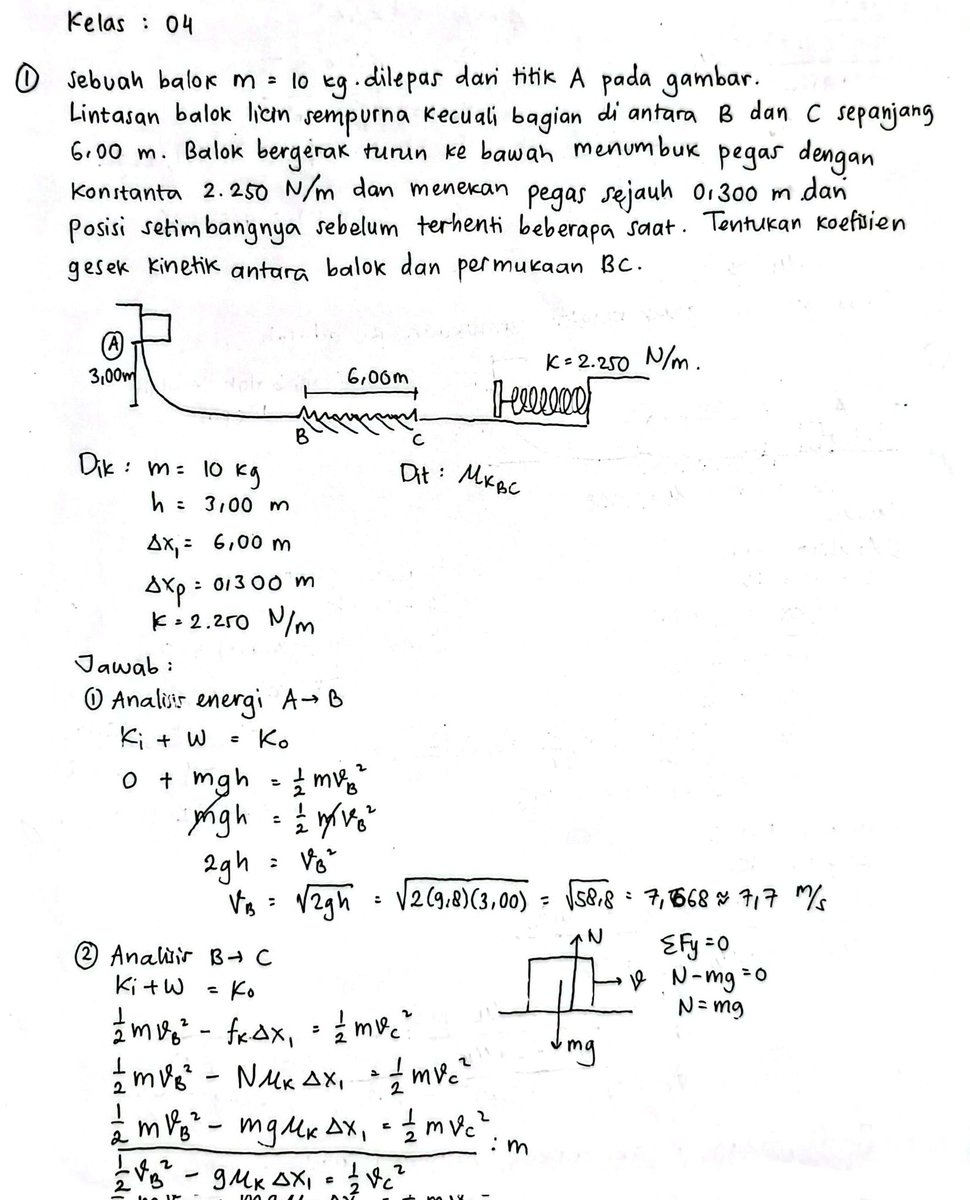 Kelas : 04
① Sebuah balok m = 10 kg. dilepas dari titik A pada gambar.
Lintasan balok licin sempurna kecuali bagian di antara B dan C sepanjang
6,00 m. Balok bergerak turun ke bawah menumbuk pegas dengan
konstanta 2.250 N/m dan menekan pegas sejauh 0,300 m dari
posisi setimbangnya sebelum terhenti beberapa saat. Tentukan koefisien
gesek kinetik antara balok dan permukaan BC.
A
3,00m
6,00m
K = 2.250 N/m.
B C
Dik : m = 10 kg
Dit : μk_BC
h = 3,00 m
Δx₁ = 6,00 m
Δxp = 0,300 m
K = 2.250 N/m
Jawab :
① Analisis energi A → B
Ki + W = Ko
0 + mgh = ½ mv_B²
mgh = ½ mv_B²
2gh = v_B²
v_B = √2gh = √2(9,8)(3,00) = √58,8 = 7,668 ≈ 7,7 m/s
② Analisis B → C
Ki + W = Ko
½ mv_B² - fkΔx₁ = ½ mv_C²
½ mv_B² - Nμk Δx₁ = ½ mv_C²
½ mv_B² - mgμk Δx₁ = ½ mv_C² : m
½ v_B² - gμk Δx₁ = ½ v_C²
N
v
mg
ΣFy = 0
N - mg = 0
N = mg